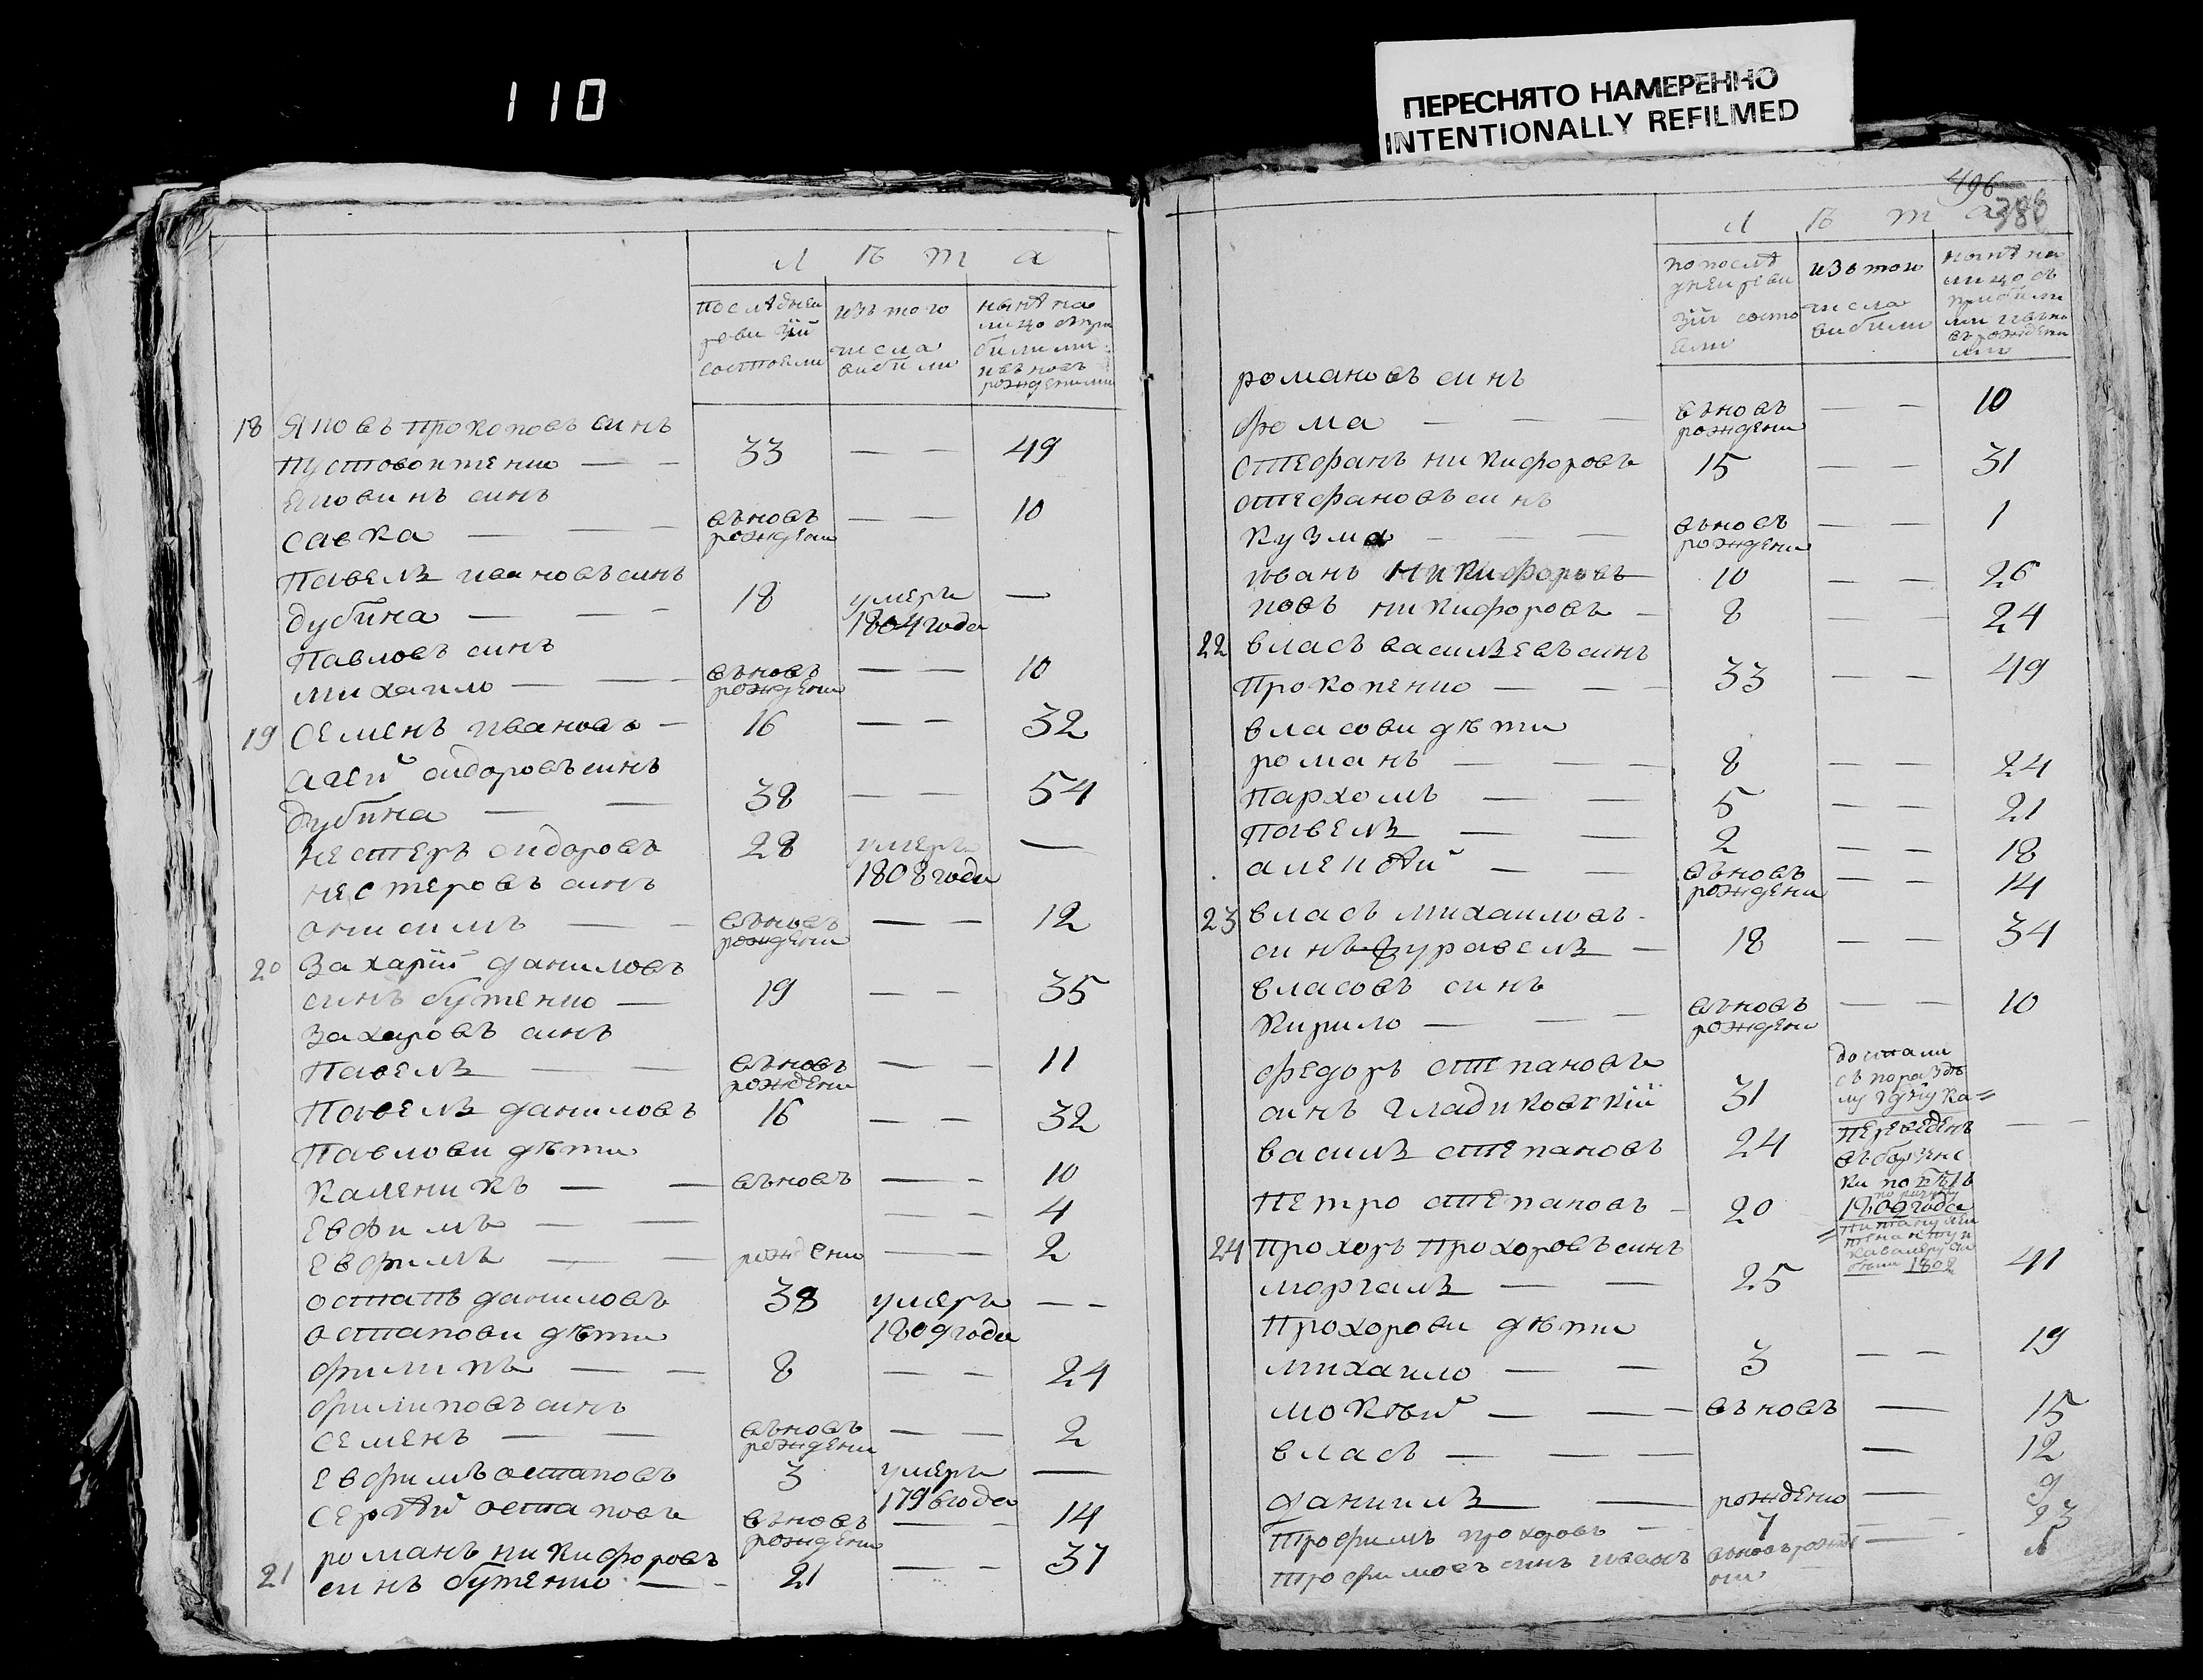 110
ПЕРЕСНЯТО НАМЕРЕННО
INTENTIONALLY REFILMED
Л Ѣ т а
последнеи ревизiй состояли
изъ того числа вибили
нынѣ на лицо съ прибилими и въновь рожденними
18 Яковъ Прокоповъ синъ
Пустовойтенко — — 33 — — 49
Яковинъ синъ
Савка — — — въновь рождени — — 10
Павелъ ивановъ синъ
дубина — — — 18 умеръ 1804 года —
Павловъ синъ
михаило — — — въновь рождени — — 10
19 Семенъ ивановъ — 16 — — 32
сидоровъ синъ
дубина — — 38 — — 54
нестеръ сидоровъ 28 умеръ 1808 года —
нестеровъ синъ
онисимъ — — въновь рождени — — 12
20 Захарiй даниловъ
синъ бутенко — 19 — — 35
Захаровъ синъ
Павелъ — — въновь рождени — — 11
Павелъ даниловъ 16 — — 32
Павлови дѣти
каленикъ — — въновь — — 10
Евфимъ — — — — 4
Ефимъ — — рождени — — 2
остапъ даниловъ 38 умеръ 1809 года — —
остапови дѣти
филипъ — — 8 — — 24
филиповъ синъ
семенъ — — въновь рождени — — 2
Евфимъ остаповъ 3 умеръ 1796 года —
сергѣй остаповъ въновь рождени — — 14
21 романъ никифоровъ
синъ бутенко — — 21 — — 37
496
386
Л Ѣ т а
по последнеи ревизiй состояли
изъ того числа вибили
нынѣ на лицо съ прибилими и въновь рожденими
романовъ синъ
фома — — — въновь рождени — — 10
стефанъ никифоровъ 15 — — 31
стефановъ синъ
кузма — — — въновь рождени — — 1
иванъ никифоровъ 10 — — 26
никифоровъ — 8 — — 24
22 власъ василъевъ синъ
Прокопенко — — — 33 — — 49
власови дѣти
романъ — — — 8 — — 24
Пархомъ — — 5 — — 21
Павелъ — — 2 — — 18
алексѣй — — въновь рождени — — 14
23 власъ михаиловъ
синъ журавелъ — 18 — — 34
власовъ синъ
кирило — — — въновь рождени — — 10
федоръ степановъ
синъ гладиковскiй 31
василъ степановъ 24 переведенъ — —
Петро степановъ — 20 1802 года
24 Прохоръ Прохоровъ синъ
моргалъ — — 25 41
1802
Прохорови дѣти
михаило — — 3 — — 19
мокѣй — — — въновь — 15
власъ — — — — 12
данилъ — рождени — 9
Трофимъ прохоровъ — 7 — — 23
Трофимовъ синъ иванъ —